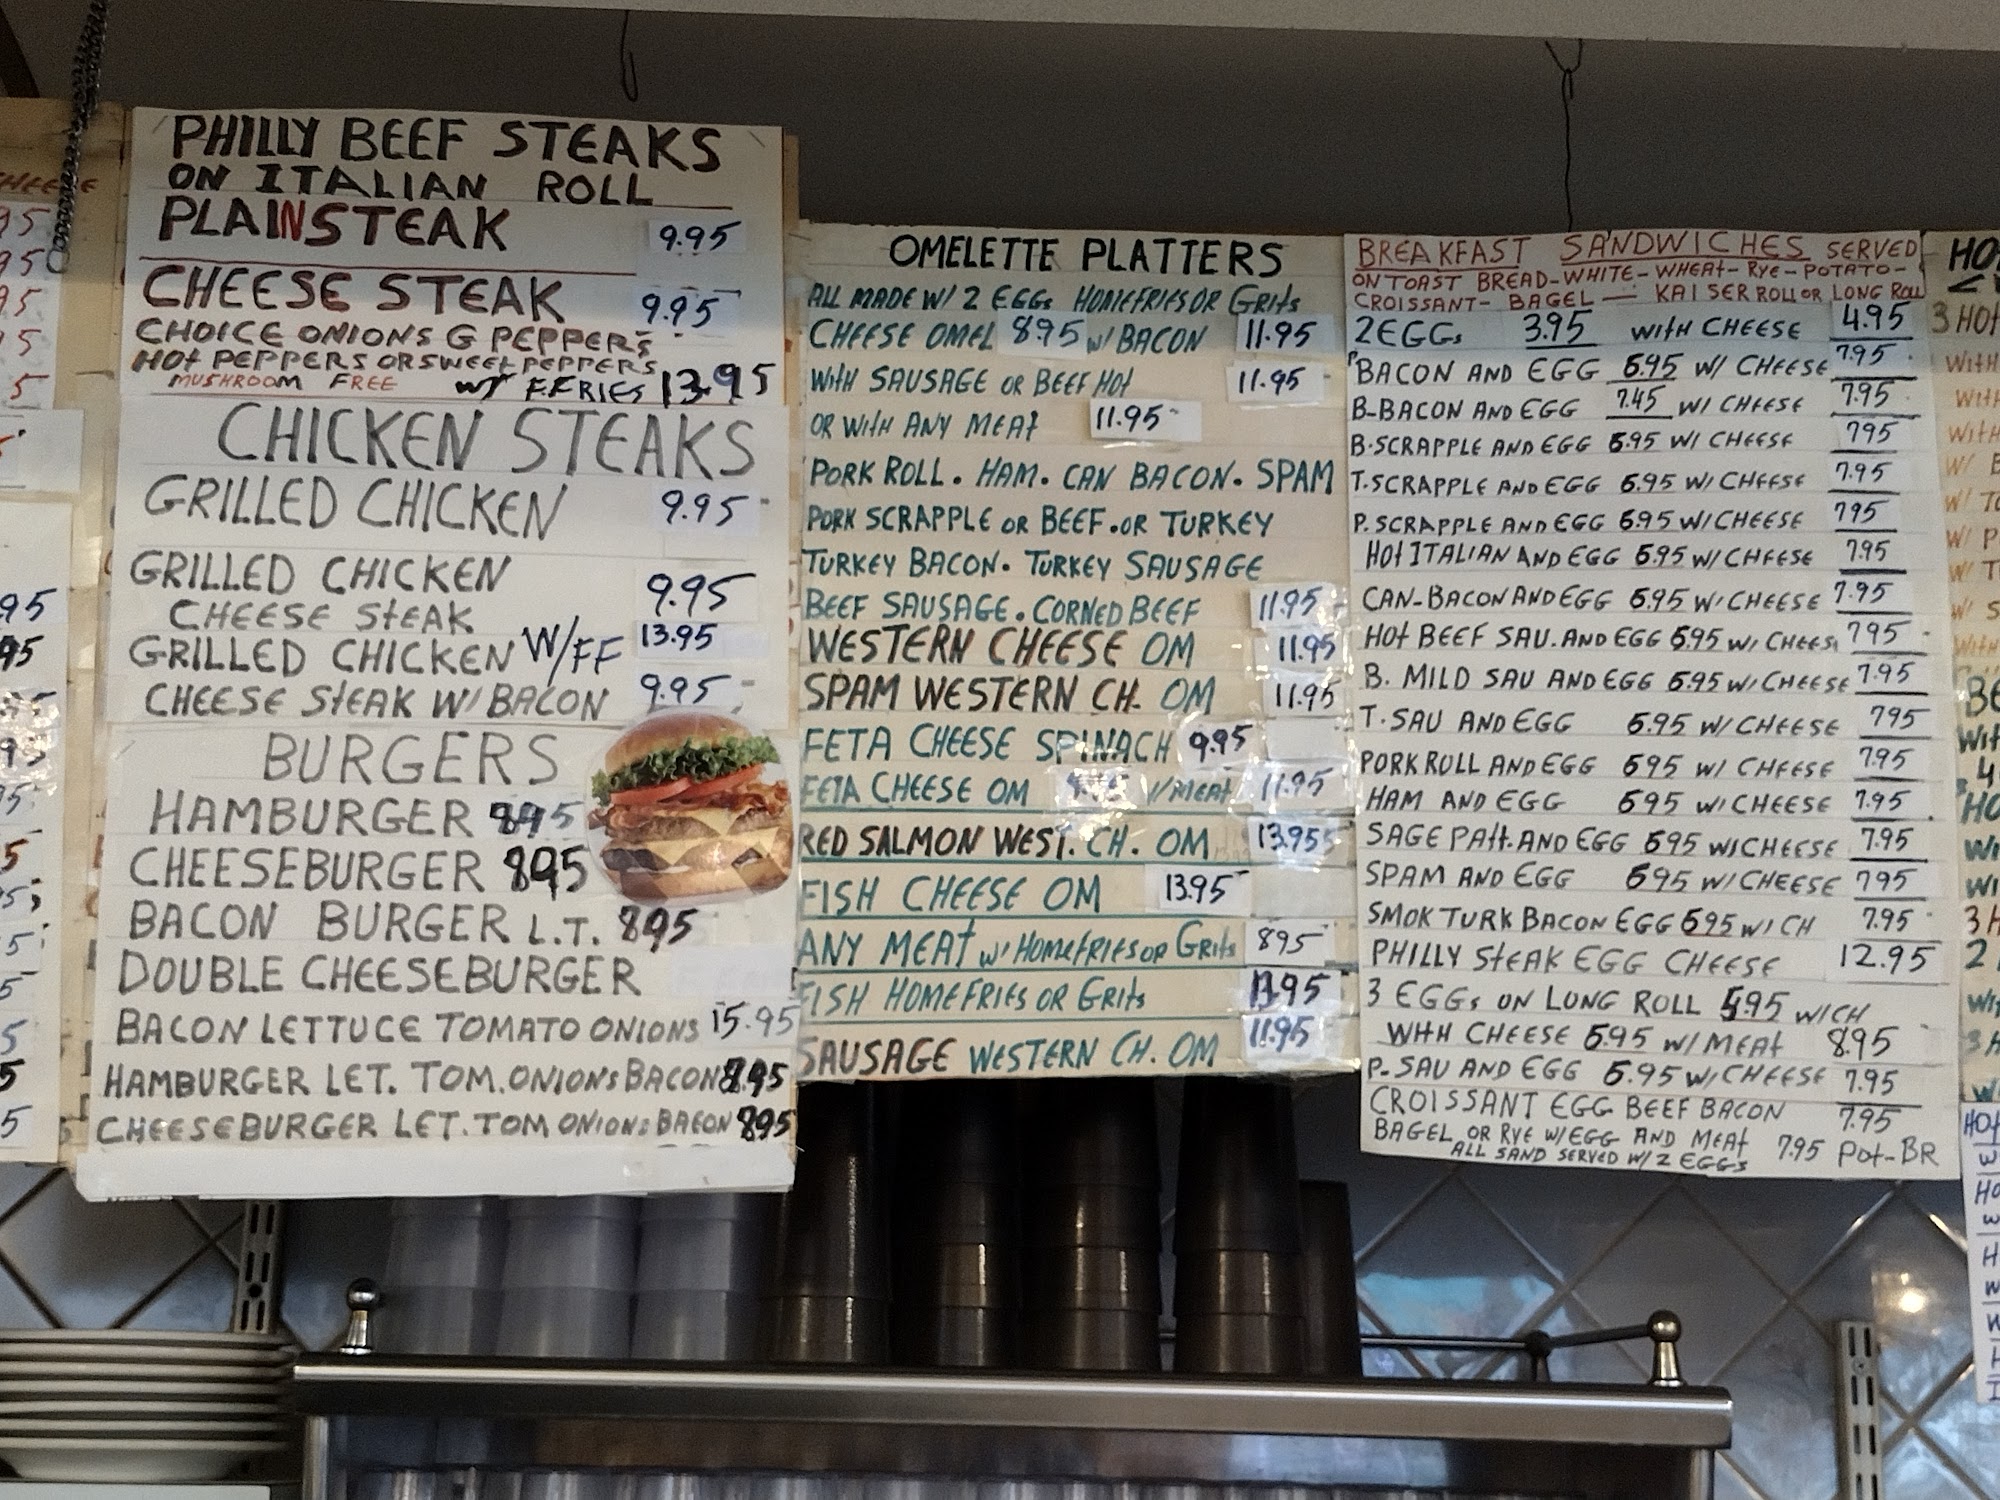 PHILLY BEEF STEAKS
ON ITALIAN ROLL
PLAIN STEAK 9.95
CHEESE STEAK 9.95
CHOICE ONIONS G PEPPERS
HOT PEPPERS OR SWEET PEPPERS
MUSHROOM FREE W/ F.FRIES 13.95
CHICKEN STEAKS
GRILLED CHICKEN 9.95
GRILLED CHICKEN
CHEESE STEAK 9.95
GRILLED CHICKEN W/FF 13.95
CHEESE STEAK W/ BACON 9.95
BURGERS
HAMBURGER 8.95
CHEESEBURGER 895
BACON BURGER L.T. 895
DOUBLE CHEESEBURGER
BACON LETTUCE TOMATO ONIONS 15.95
HAMBURGER LET. TOM. ONIONS BACON 8.95
CHEESEBURGER LET. TOM ONIONS BACON 895
OMELETTE PLATTERS
ALL MADE W/ 2 EGGs HOMEFRIES OR Grits
CHEESE OMEL 8.95 w/ BACON 11.95
WITH SAUSAGE OR BEEF HOT 11.95
OR WITH ANY MEAT 11.95
PORK ROLL. HAM. CAN BACON. SPAM
PORK SCRAPPLE OR BEEF. OR TURKEY
TURKEY BACON. TURKEY SAUSAGE
BEEF SAUSAGE. CORNED BEEF 11.95
WESTERN CHEESE OM 11.95
SPAM WESTERN CH. OM 11.95
FETA CHEESE SPINACH 9.95
FETA CHEESE OM W/MEAT 11.95
RED SALMON WEST. CH. OM 13.95
FISH CHEESE OM 13.95
ANY MEAT w/ HOMEFRIES OR Grits 895
FISH HOMEFRIES OR Grits 13.95
SAUSAGE WESTERN CH. OM 11.95
BREAKFAST SANDWICHES SERVED
ON TOAST BREAD-WHITE-WHEAT-RYE-POTATO-
CROISSANT- BAGEL — KAISER ROLL OR LONG ROLL
2 EGGs 3.95 WITH CHEESE 4.95
P BACON AND EGG 6.95 W/ CHEESE 7.95
B-BACON AND EGG 7.45 W/ CHEESE 7.95
B.SCRAPPLE AND EGG 6.95 W/ CHEESE 795
T.SCRAPPLE AND EGG 6.95 W/ CHEESE 7.95
P. SCRAPPLE AND EGG 6.95 W/ CHEESE 795
HOT ITALIAN AND EGG 6.95 W/ CHEESE 7.95
CAN-BACON AND EGG 6.95 W/ CHEESE 7.95
HOT BEEF SAU. AND EGG 6.95 W/ CHEES 795
B. MILD SAU AND EGG 6.95 W/ CHEESE 7.95
T. SAU AND EGG 6.95 W/ CHEESE 795
PORK ROLL AND EGG 695 W/ CHEESE 7.95
HAM AND EGG 695 W/ CHEESE 7.95
SAGE PATT. AND EGG 695 W/ CHEESE 7.95
SPAM AND EGG 695 W/ CHEESE 795
SMOK TURK BACON EGG 695 W/ CH 7.95
PHILLY STEAK EGG CHEESE 12.95
3 EGGs ON LONG ROLL 5.95 W/CH
WITH CHEESE 6.95 W/ MEAT 8.95
P- SAU AND EGG 6.95 W/ CHEESE 7.95
CROISSANT EGG BEEF BACON 7.95
BAGEL OR RYE W/EGG AND MEAT 7.95 Pot-BR
ALL SAND SERVED W/ 2 EGGs